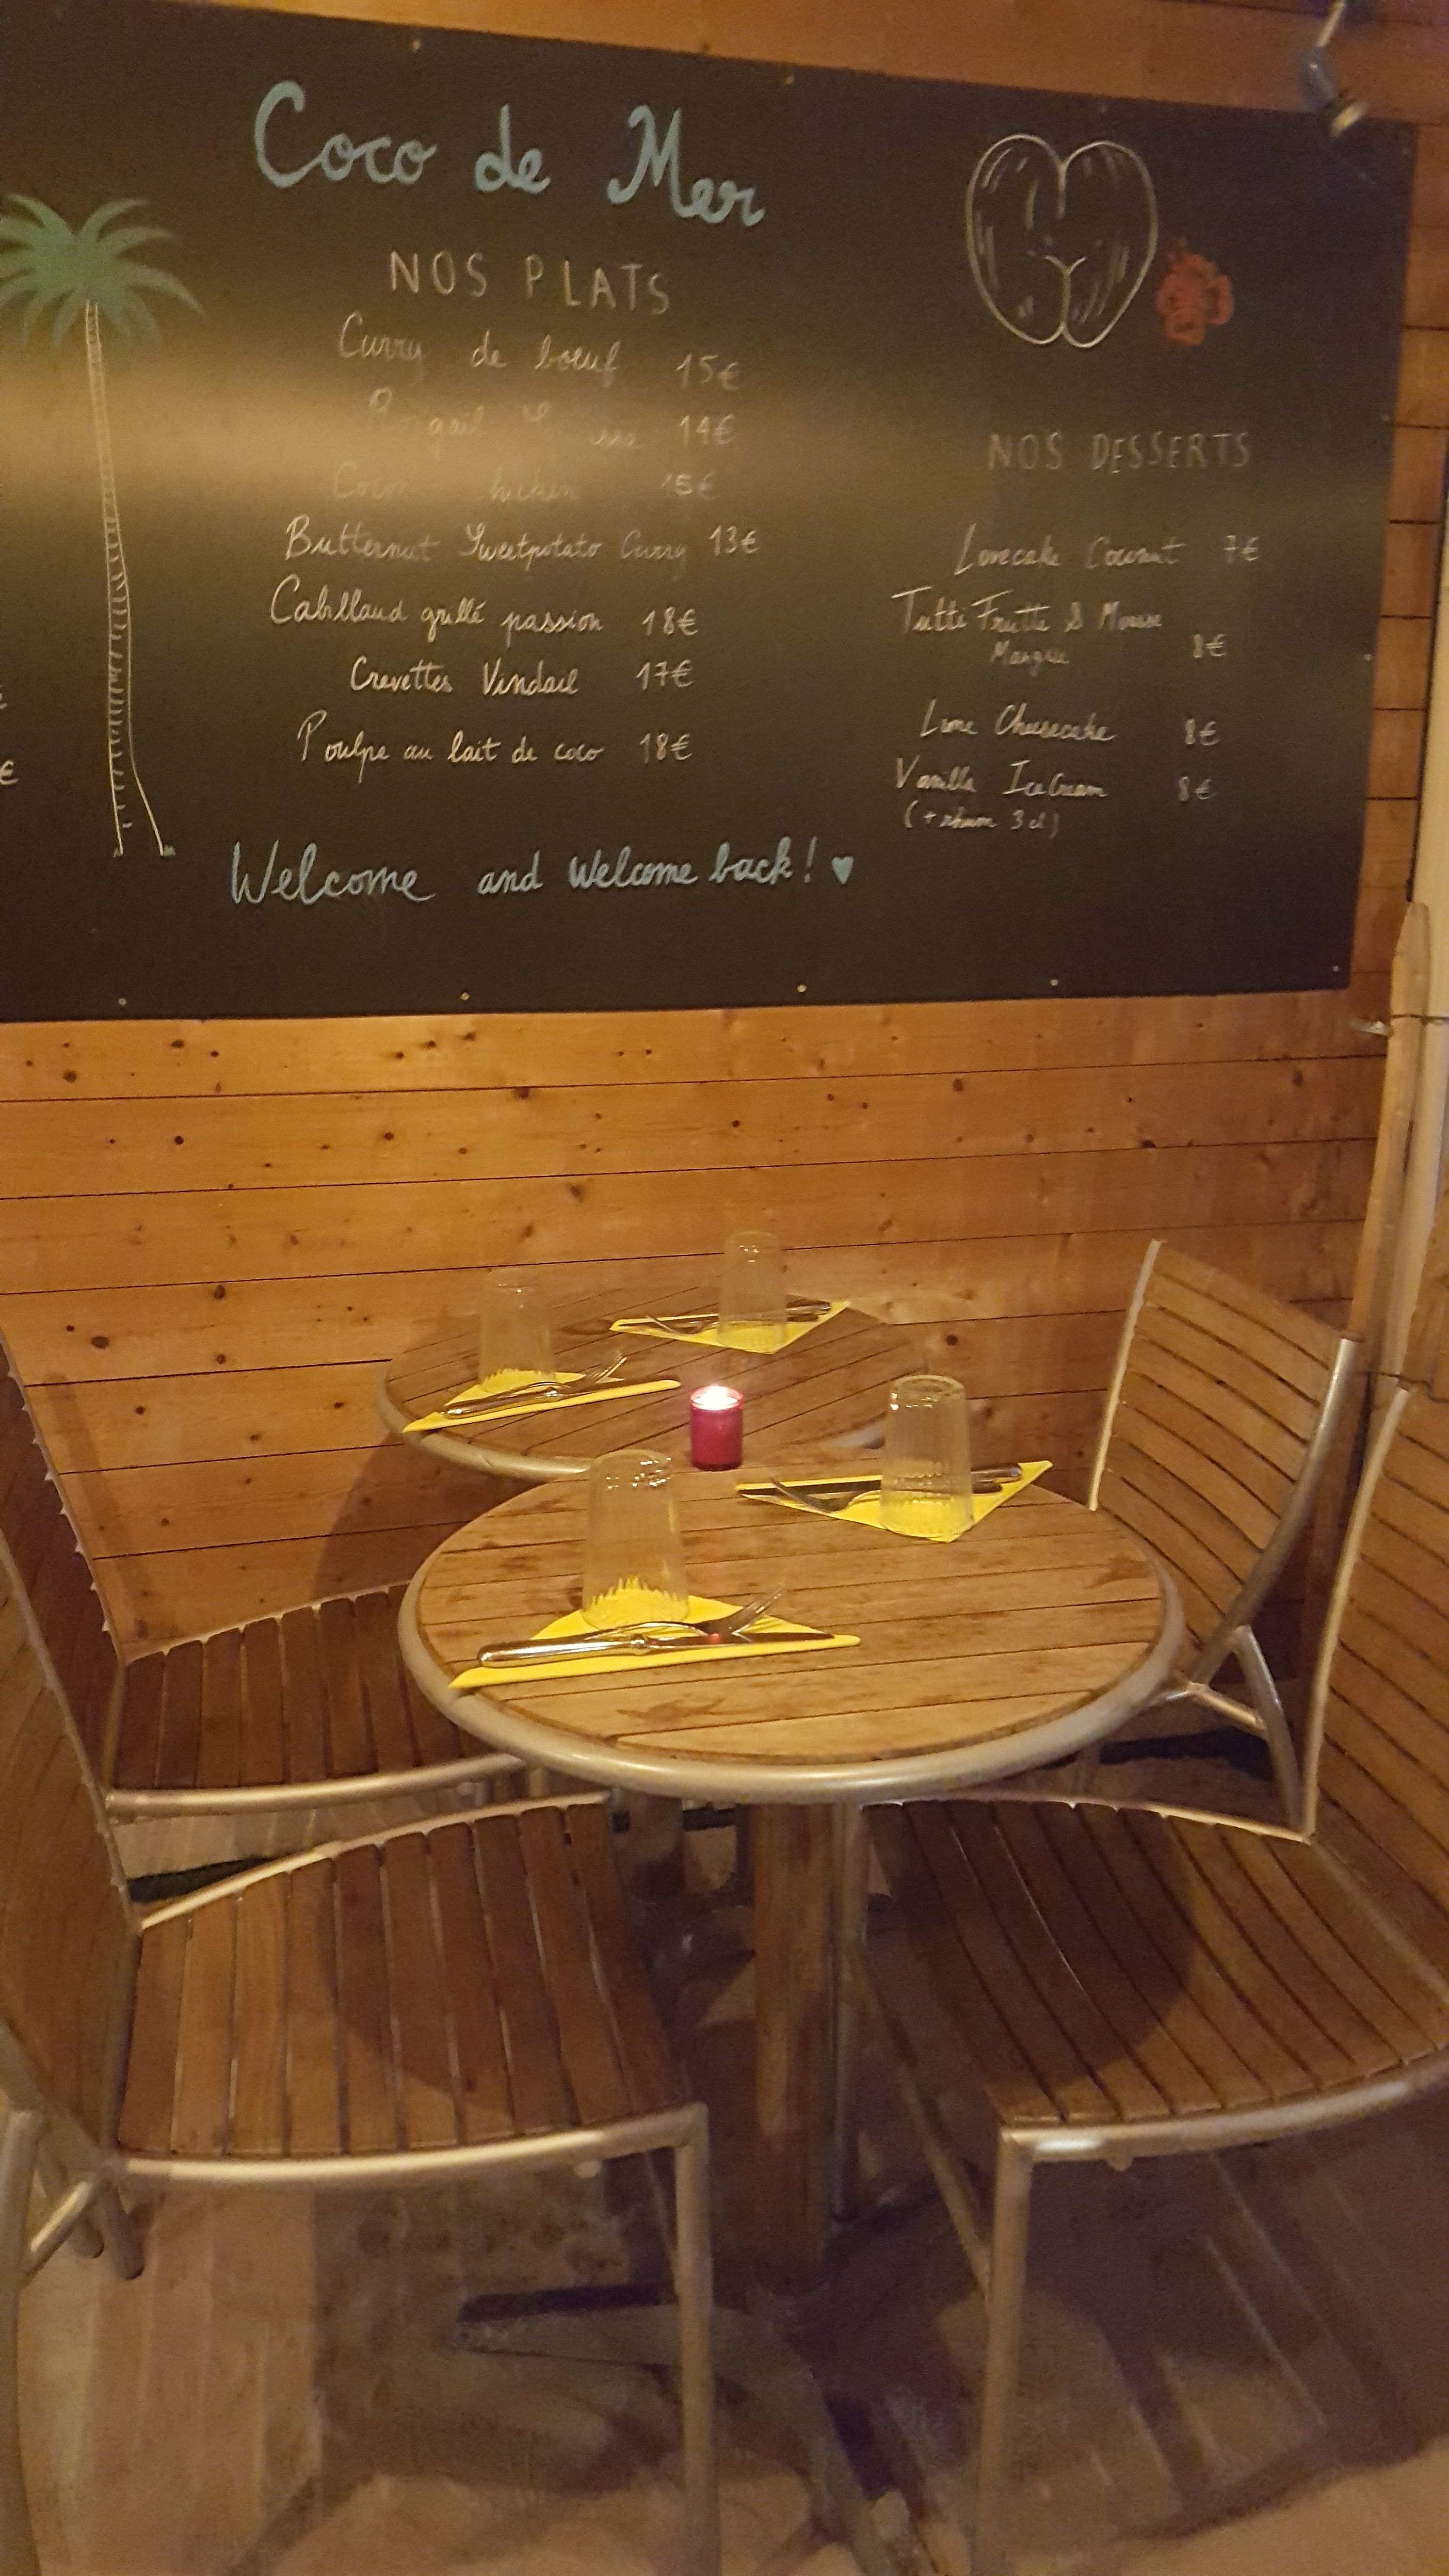 Coco de Mer
NOS PLATS
Curry de boeuf 15€
14€
Coco chicken 15€
Butternut Sweetpotato Curry 13€
Cabillaud grillé passion 18€
Crevettes Vindail 17€
Poulpe au lait de coco 18€
Welcome and welcome back!
NOS DESSERTS
Lovecake Coconut 7€
Tutti Frutti & Mousse
Mangue 8€
Lime Cheesecake 8€
Vanilla Ice Cream 8€
(+ rhum 3 cl)
€
€